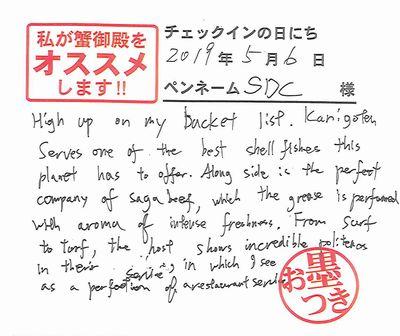 私が蟹御殿を
オススメ
します!!
チェックインの日にち
2019年5月6日
ペンネーム SDC 様
High up on my bucket list. Kanigoten
Serves one of the best shell fishes this
planet has to offer. Along side is the perfect
company of saga beef, which the grease is performed
with aroma of intense freshness. From surf
to torf, the host shows incredible politeness
in their service, in which I see
as a perfection of a restaurant service
お墨
つき